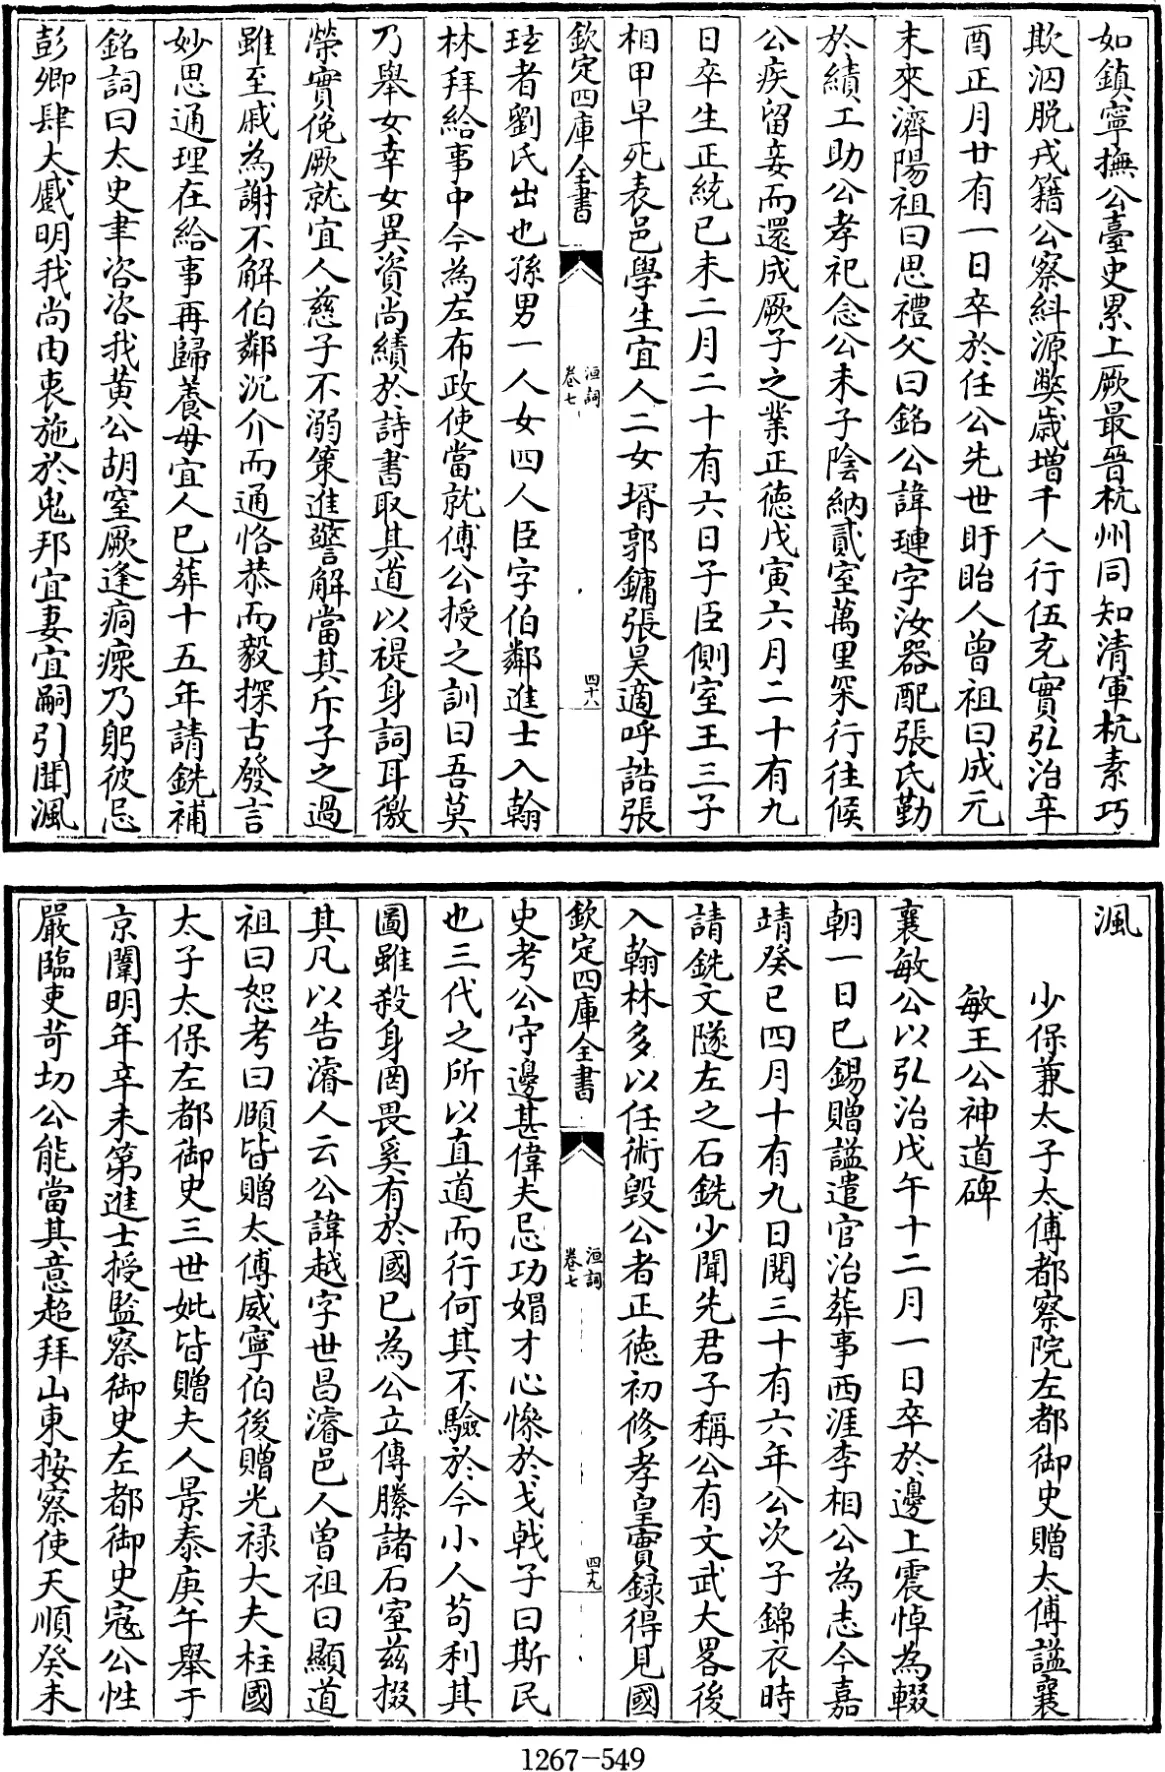 如鎮寧撫公臺史累上厥最晉杭州同知清軍杭素巧
欺泅脱戎籍公察糾源獘歳増千人行伍充實弘治辛
酉正月廿有一日卒於任公先世盱眙人曾祖曰成元
末來濟陽祖曰思禮父曰銘公諱璉字汝器配張氏勤
於績工助公孝祀念公未子陰納貳室萬里罙行往候
公疾留妾而還成厥子之業正徳戊寅六月二十有九
日卒生正統已未二月二十有六日子臣側室王三子
相甲早死表邑學生宜人二女壻郭鏞張昊適呼誥張
欽定四庫全書
洹詞
卷七
四十八
珤者劉氏出也孫男一人女四人臣字伯鄰進士入翰
林拜給事中今為左布政使當就傅公授之訓曰吾莫
乃舉女幸女異資尚績於詩書取其道以禔身詞耳徼
榮實俛厥就宜人慈子不溺策進警解當其斥子之過
雖至戚為謝不解伯鄰沉介而通恪恭而毅探古發言
妙思通理在給事再歸養母宜人已葬十五年請銑補
銘詞曰太史聿咨咨我黄公胡窒厥逢痌瘝乃躬彼忌
彭卿肆大戲明我尚由衷施於鬼邦宜妻宜嗣引聞渢
渢
少保兼太子太傅都察院左都御史贈太傅諡襄
敏王公神道碑
襄敏公以弘治戊午十二月一日卒於邊上震悼為輟
朝一日已錫贈諡遣官治葬事西涯李相公為志今嘉
靖癸已四月十有九日閱三十有六年公次子錦衣時
請銑文隧左之石銑少聞先君子稱公有文武大畧後
入翰林多以任術毁公者正徳初修孝皇實録得見國
欽定四庫全書
洹詞
卷七
四十九
史考公守邊甚偉夫忌功娼才心慘於戈戟子曰斯民
也三代之所以直道而行何其不驗於今小人茍利其
圖雖殺身罔畏奚有於國已為公立傳縢諸石室兹掇
其凡以告濬人云公諱越字世昌濬邑人曾祖曰顯道
祖曰恕考曰頤皆贈太傅威寧伯後贈光禄大夫柱國
太子太保左都御史三世妣皆贈夫人景泰庚午舉于
京闈明年辛未第進士授監察御史左都御史宼公性
嚴臨吏苛切公能當其意超拜山東按察使天順癸未
1267-549